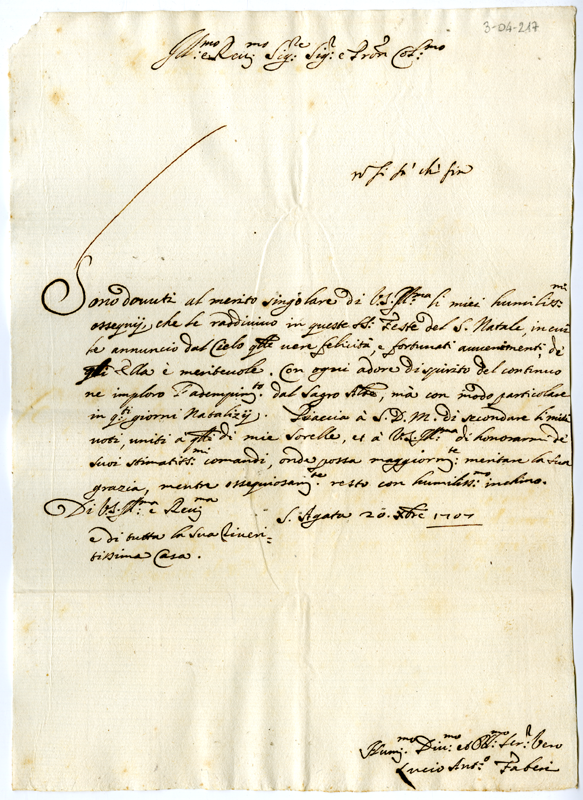 3-04-217
Ill:mo e Reu:mo Sig:re Sig:r e Pron Col:mo
Sono douuti al merito singolare di V.S. Ill:ma li miei humiliss:mi
ossequij, che le rendiuino in queste SS. Feste del S. Natale, in cui
le annuncio dal Cielo q͞lle uere felicità, e fortunati auuenimenti, de
q͞li Ella è meriteuole. Con ogni ardore di spirito del continuo
ne imploro l'adempim:to dal Sagro Altre, mà con modo particolare
in q:ti giorni Natalizij. Piaccia à S.D.M. di secondare li miei
uoti, uniti a q͞lli di mie Sorelle, et à V.S. Ill:ma di honorarmi de
suoi stimatiss:mi comandi, onde possa maggiorm:te meritare la Sua
grazia, mentre ossequiosam:te resto con humiliss:mo inchino.
Di V.S. Ill:ma e Reu:ma
S. Agata 20. Xbre 1707
e di tutta la Sua Riueri=
tissima Casa.
Humi:mo Diu:mo et Obl:mo Ser:r Vero
Lucio Ant:o Faberi